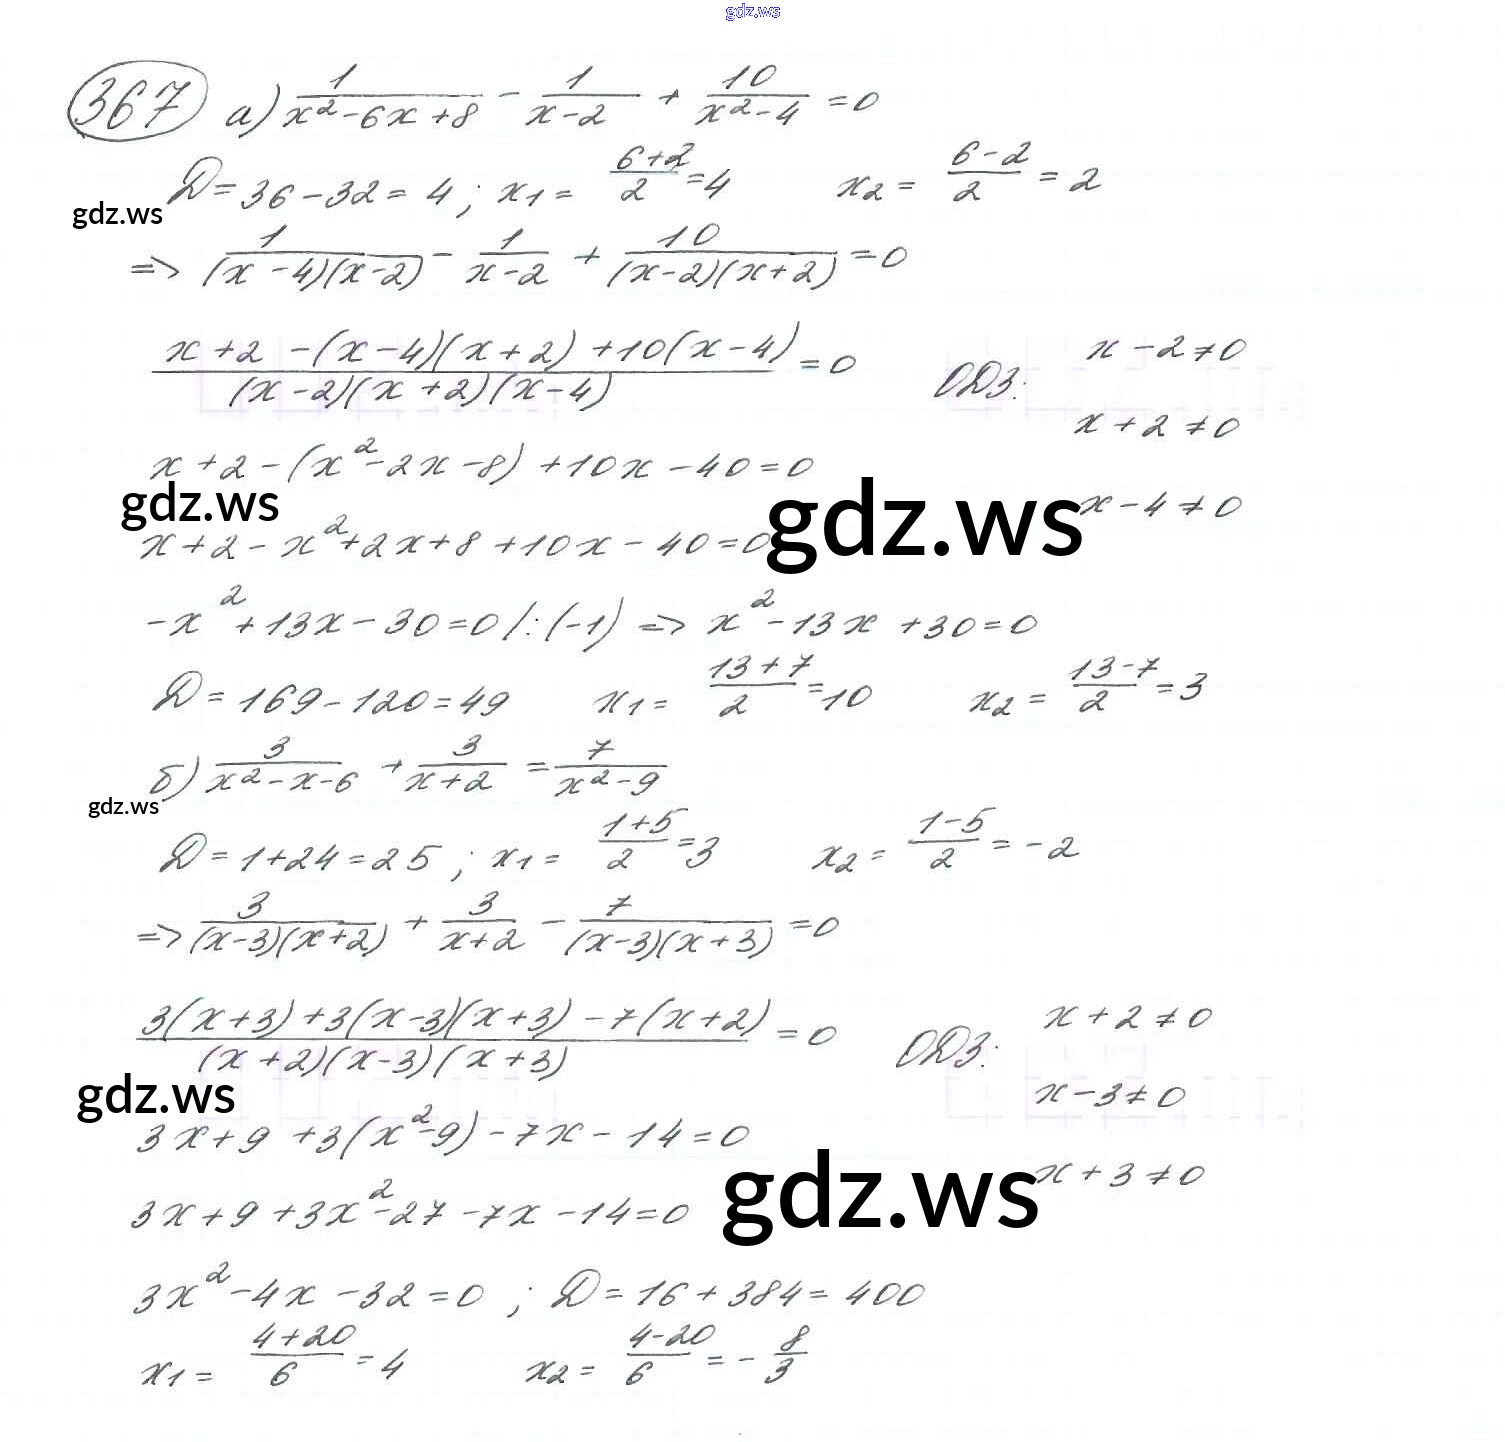 gdz.ws
367 а) 1/(x²-6x+8) - 1/(x-2) + 10/(x²-4) = 0
D = 36-32 = 4; x1 = (6+2)/2 = 4 x2 = (6-2)/2 = 2
gdz.ws
=> 1/((x-4)(x-2)) - 1/(x-2) + 10/((x-2)(x+2)) = 0
(x+2-(x-4)(x+2)+10(x-4))/((x-2)(x+2)(x-4)) = 0 ОДЗ: x-2≠0
x+2≠0
x+2-(x²-2x-8)+10x-40=0
gdz.ws gdz.ws x-4≠0
x+2-x²+2x+8+10x-40=0
-x²+13x-30=0 /:(-1) => x²-13x+30=0
D = 169-120 = 49 x1 = (13+7)/2 = 10 x2 = (13-7)/2 = 3
б) 3/(x²-x-6) + 3/(x+2) = 7/(x²-9)
gdz.ws
D = 1+24 = 25; x1 = (1+5)/2 = 3 x2 = (1-5)/2 = -2
=> 3/((x-3)(x+2)) + 3/(x+2) - 7/((x-3)(x+3)) = 0
(3(x+3)+3(x-3)(x+3)-7(x+2))/((x+2)(x-3)(x+3)) = 0 ОДЗ: x+2≠0
gdz.ws x-3≠0
3x+9+3(x²-9)-7x-14=0
gdz.ws x+3≠0
3x+9+3x²-27-7x-14=0
3x²-4x-32=0; D = 16+384 = 400
x1 = (4+20)/6 = 4 x2 = (4-20)/6 = -8/3